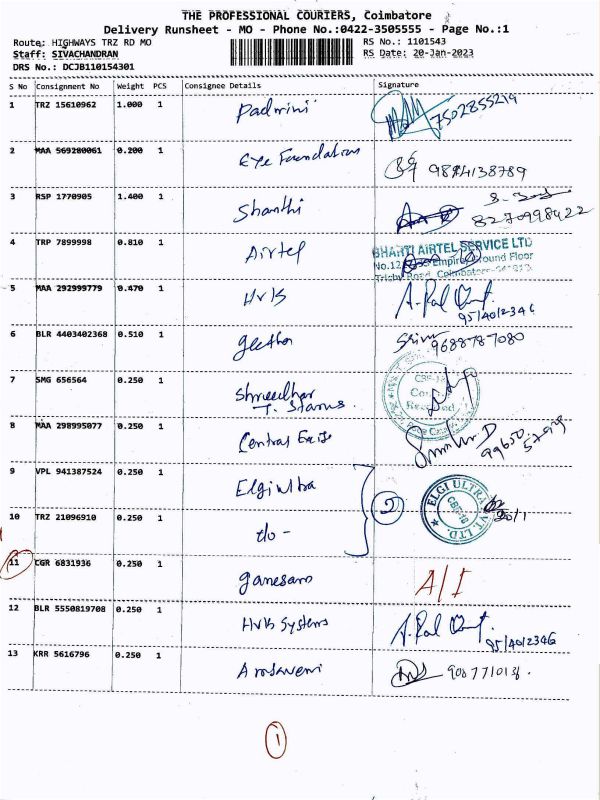 THE PROFESSIONAL COURIERS, Coimbatore
Delivery Runsheet - MO - Phone No.:0422-3505555 - Page No.:1
Route: HIGHWAYS TRZ RD MO RS No.: 1101543
Staff: SIVACHANDRAN RS Date: 20-Jan-2023
DRS No.: DCJB110154301
S No Consignment No Weight PCS Consignee Details Signature
1 TRZ 15610962 1.000 1 Padmini 7502855219
2 MAA 569280061 0.200 1 Eye Foundation 9884138789
3 RSP 1770905 1.400 1 Shanthi
8270998422
4 TRP 7899998 0.810 1 Airtel BHARTI AIRTEL SERVICE LTD
Ground Floor
Trichy Road, Coimbatore
5 MAA 292999779 0.470 1 HVK
6 BLR 4403402368 0.510 1 geetha 9688787080
7 SMG 656564 0.250 1 Shreedhar
8 MAA 298995077 0.250 1 Central
9 VPL 941387524 0.250 1 Elgi ultra 2 ELGI ULTRA PVT. LTD. CBE-18
10 TRZ 21096910 0.250 1 do - 20/1
11 CGR 6831936 0.250 1 A/I
12 BLR 5550819708 0.250 1 HVK Systems
13 KRR 5616796 0.250 1
1